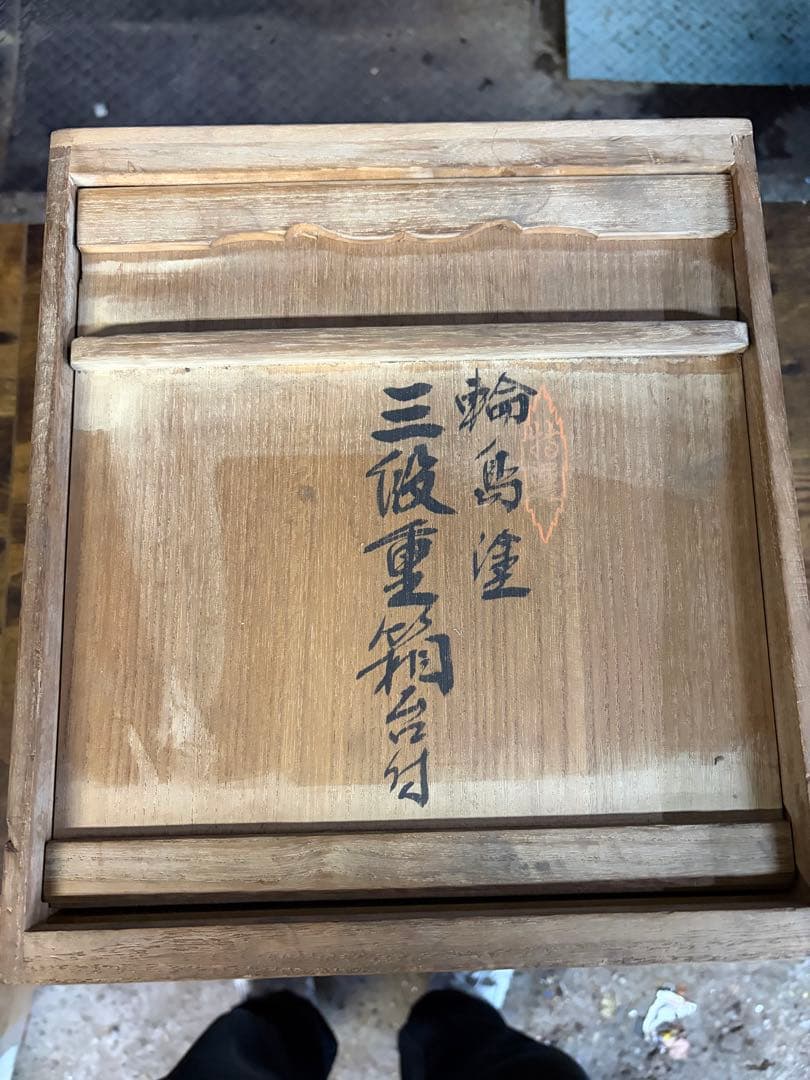 輪島塗
三段重箱台付